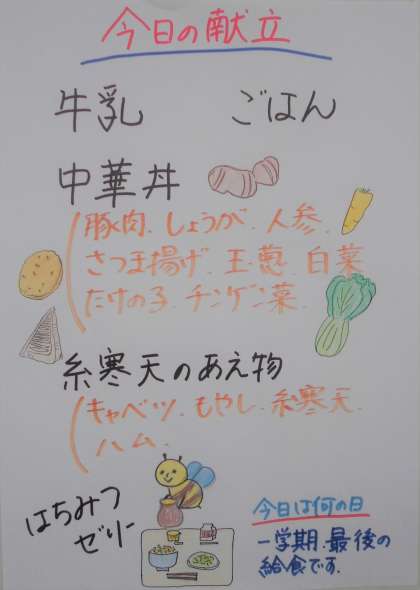 今日の献立
牛乳 ごはん
中華丼
豚肉.しょうが.人参.
さつま揚げ.玉葱.白菜
たけの子.チンゲン菜.
糸寒天のあえ物
キャベツ.もやし.糸寒天.
ハム.
はちみつ
ゼリー
今日は何の日
一学期.最後の
給食です.